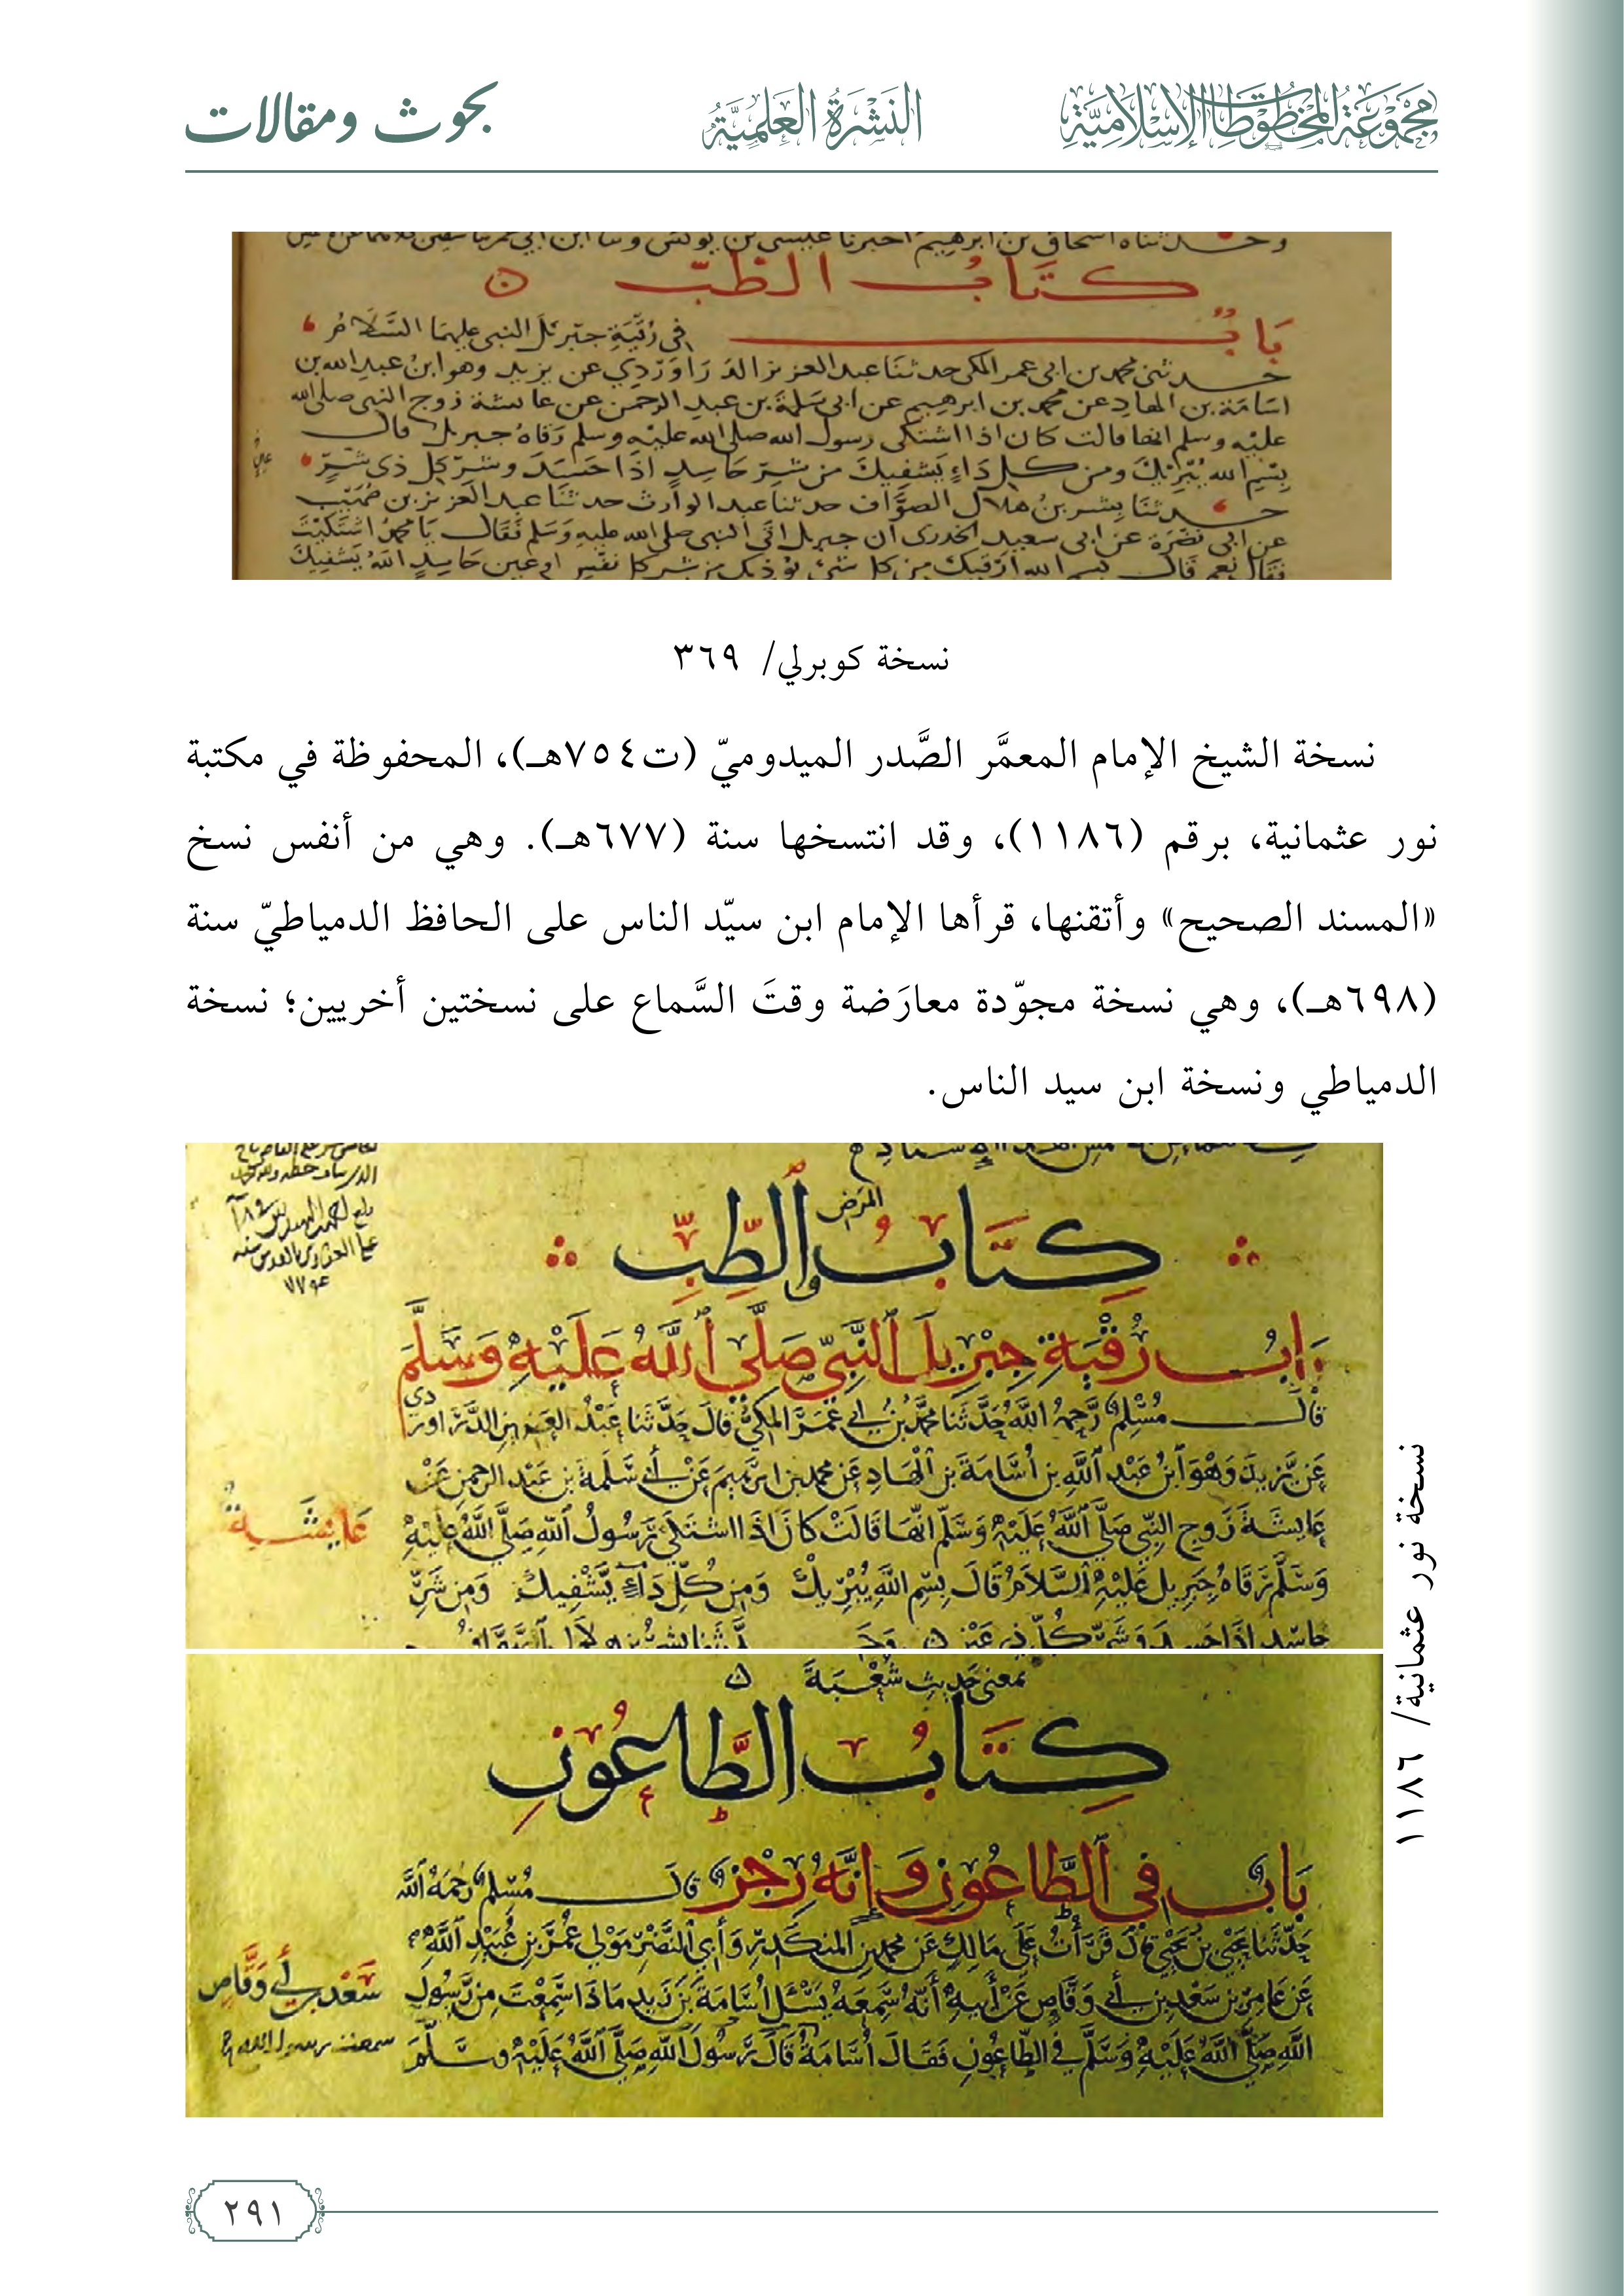 مجموعة المخطوطات الإسلامية
النَّشْرَةُ العِلْمِيَّةُ
بحوث ومقالات
كتاب الطب
باب في رُقْيَةِ جبرئل النبى عليهما السَّلَامُ
حدثنى محمد بن ابى عمر المكى حدثنا عبد العزيز الدَرَاوَرْدِي عن يزيد وهو ابنُ عبد الله بن
اسَامَة بن الهاد عن محمد بن ابرهيم عن ابى سَلمة بن عبد الرحمن عن عائشة زوج النبي صلى الله
عليه وسلم انها قالت كان اذا اشتكى رسول الله صلى الله عليه وسلم رَقاه جبريل قال
بِسْمِ الله يُبْرِيْكَ ومن كل دَاءٍ يَشفيكَ من شرِّ حَاسِدٍ اذَا حَسَدَ وشرّ كل ذى
حدثنا بِشر بنُ هلال الصوَّاف حدثنا عبد الوارث حدثنا عبد العزيز بن صُهَيْب
عن ابى نَضْرَة عن ابى سعيد الخدرى أن جبريل اتى النبى صلى الله عليه وَسَلم فَقَال يَا محمدُ اشتكَيْتَ
فقال نعم قال بسم الله ارقيك من كل شئ يوذيك من شر كل نفس او عين حَاسِدٍ اللهُ يَشفيكَ
نسخة كوبرلي/ ٣٦٩
نسخة الشيخ الإمام المعمَّر الصَّدر الميدوميّ (ت٧٥٤هـ)، المحفوظة في مكتبة
نور عثمانية، برقم (١١٨٦)، وقد انتسخها سنة (٦٧٧هـ). وهي من أنفس نسخ
«المسند الصحيح» وأتقنها، قرأها الإمام ابن سيّد الناس على الحافظ الدمياطيّ سنة
(٦٩٨هـ)، وهي نسخة مجوّدة معارَضة وقتَ السَّماع على نسختين أخريين؛ نسخة
الدمياطي ونسخة ابن سيد الناس.
المرض
كِتَابُ الطِّبِّ
بابُ رُقْيَةِ جِبْرِيلَ النَّبِيَّ صَلَّى ٱللَّهُ عَلَيْهِ وَسَلَّمَ
قَالَ مُسْلِمٌ رَحِمَهُ اللَّهُ حَدَّثَنَا مُحَمَّدُ بْنُ أَبِي عُمَرَ المَكِّيُّ قَالَ حَدَّثَنَا عَبْدُ العَزِيزِ الدَّرَاوَرْدِي
عَنْ يَزِيدَ وَهْوَ ٱبْنُ عَبْدِ ٱللَّهِ بنِ أُسَامَةَ بنِ ٱلْهَادِ عَن محمد بن ابرٰهيمَ عَنْ أَبي سَلَمَةَ بنِ عَبْد الرحمن عَنْ
عَائِشَةَ زَوجِ النَّبِيِّ صَلَّى ٱللَّهُ عَلَيْهِ وَسَلَّمَ انَّهَا قَالَتْ كَانَ اذَا اشتَكَى رَسُولُ ٱللَّهِ صَلَّى ٱللَّهُ عَلَيْهِ
وَسَلَّمَ رَقَاهُ جِبرِيلُ عَلَيْهِ السَّلَامُ قَالَ بِسْمِ اللَّهِ يُبْرِيكَ وَمِن كُلِّ دَاءٍ يَشْفِيكَ وَمِن شَرِّ
حَاسِدٍ اذَا حَسَدَ وَشَرِّ كُلِّ ذِي عَيْنٍ
عَايِشَةُ
بمعنى حَدِيثِ شُعْبَةَ
كِتَابُ الطَّاعُونِ
بَابٌ فِي ٱلطَّاعُونِ وَإِنَّهُ رِجْزٌ قَالَ مُسْلِمٌ رَحِمَهُ ٱللَّهُ
حَدَّثَنَا يَحْيَى بنُ يَحْيَى قَالَ قَرَأْتُ عَلَى مَالِكٍ عَن محمد بن المُنكَدِرِ وَأَبِي النَّضْرِ مَوْلَى عُمَرَ بنِ عُبَيْدِ ٱللَّهِ
عَنْ عَامِرِ بنِ سَعْدِ بنِ أَبِي وَقَّاصٍ عَنْ أَبِيهِ أَنَّهُ سَمِعَهُ يَسْئَلُ أُسَامَةَ بْنَ زَيدٍ مَاذَا سَمِعْتَ مِن رَسُولِ
اللَّهِ صَلَّى ٱللَّهُ عَلَيْهِ وَسَلَّمَ فِي الطَّاعُونِ فَقَالَ أُسَامَةُ قَالَ رَسُولُ ٱللَّهِ صَلَّى ٱللَّهُ عَلَيْهِ وسَلَّمَ
سَعْد بن أبي وَقَّاص
نسخة نور عثمانية/ ١١٨٦
٢٩١